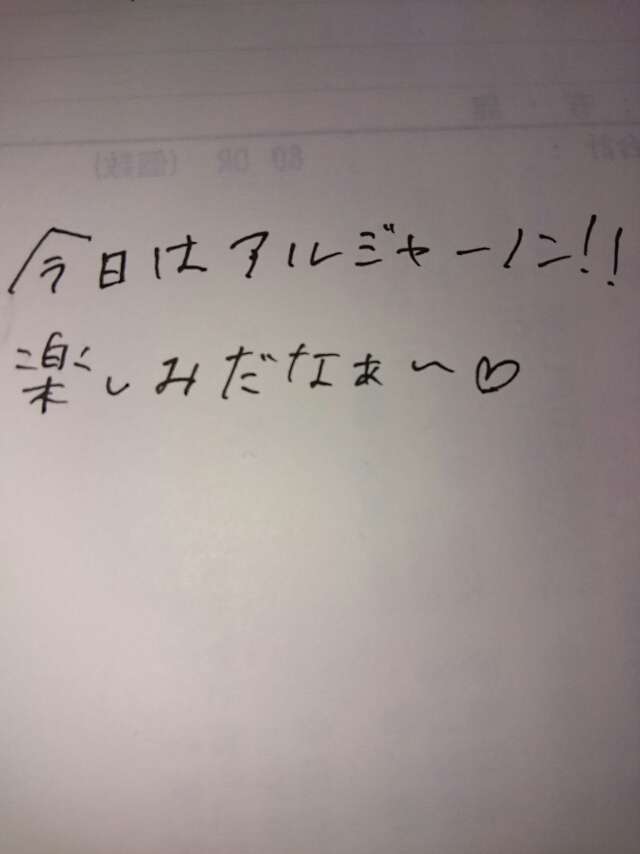 今日はアルジャーノン!!
楽しみだなぁ〜♡